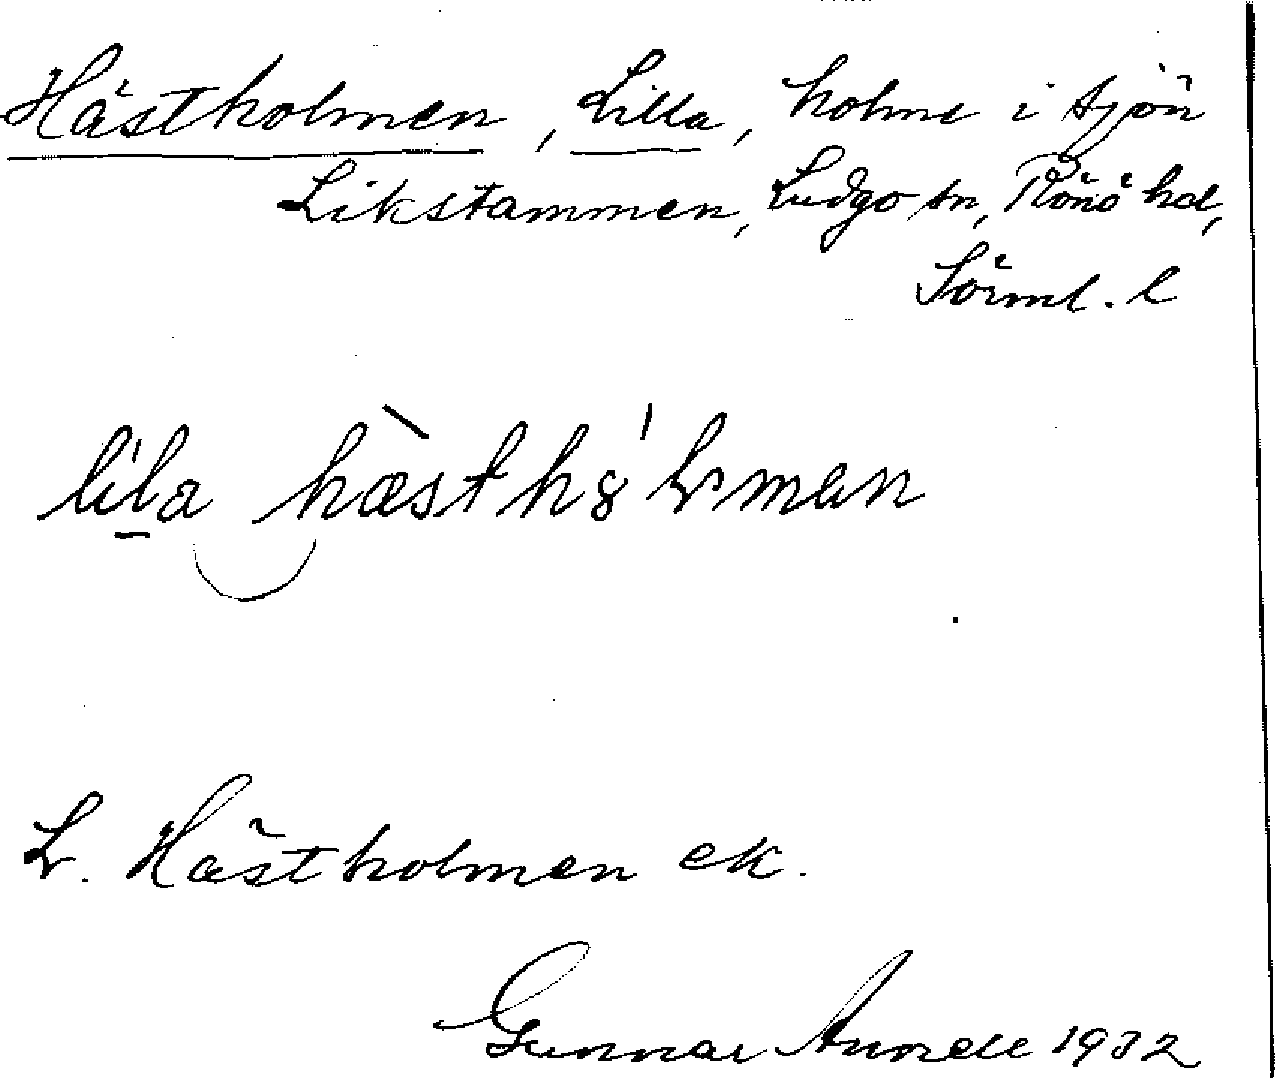 Hästholmen, Lilla, holme i sjön
Likstammen, Ludgo sn, Rönö hd,
Sörml. l
lila hæstholmen
L. Hästholmen ek.
Gunnar 1932